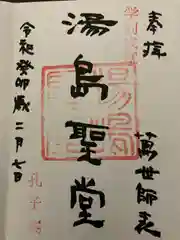 奉拝
萬世師表
湯島聖堂
令和癸卯歳二月七日